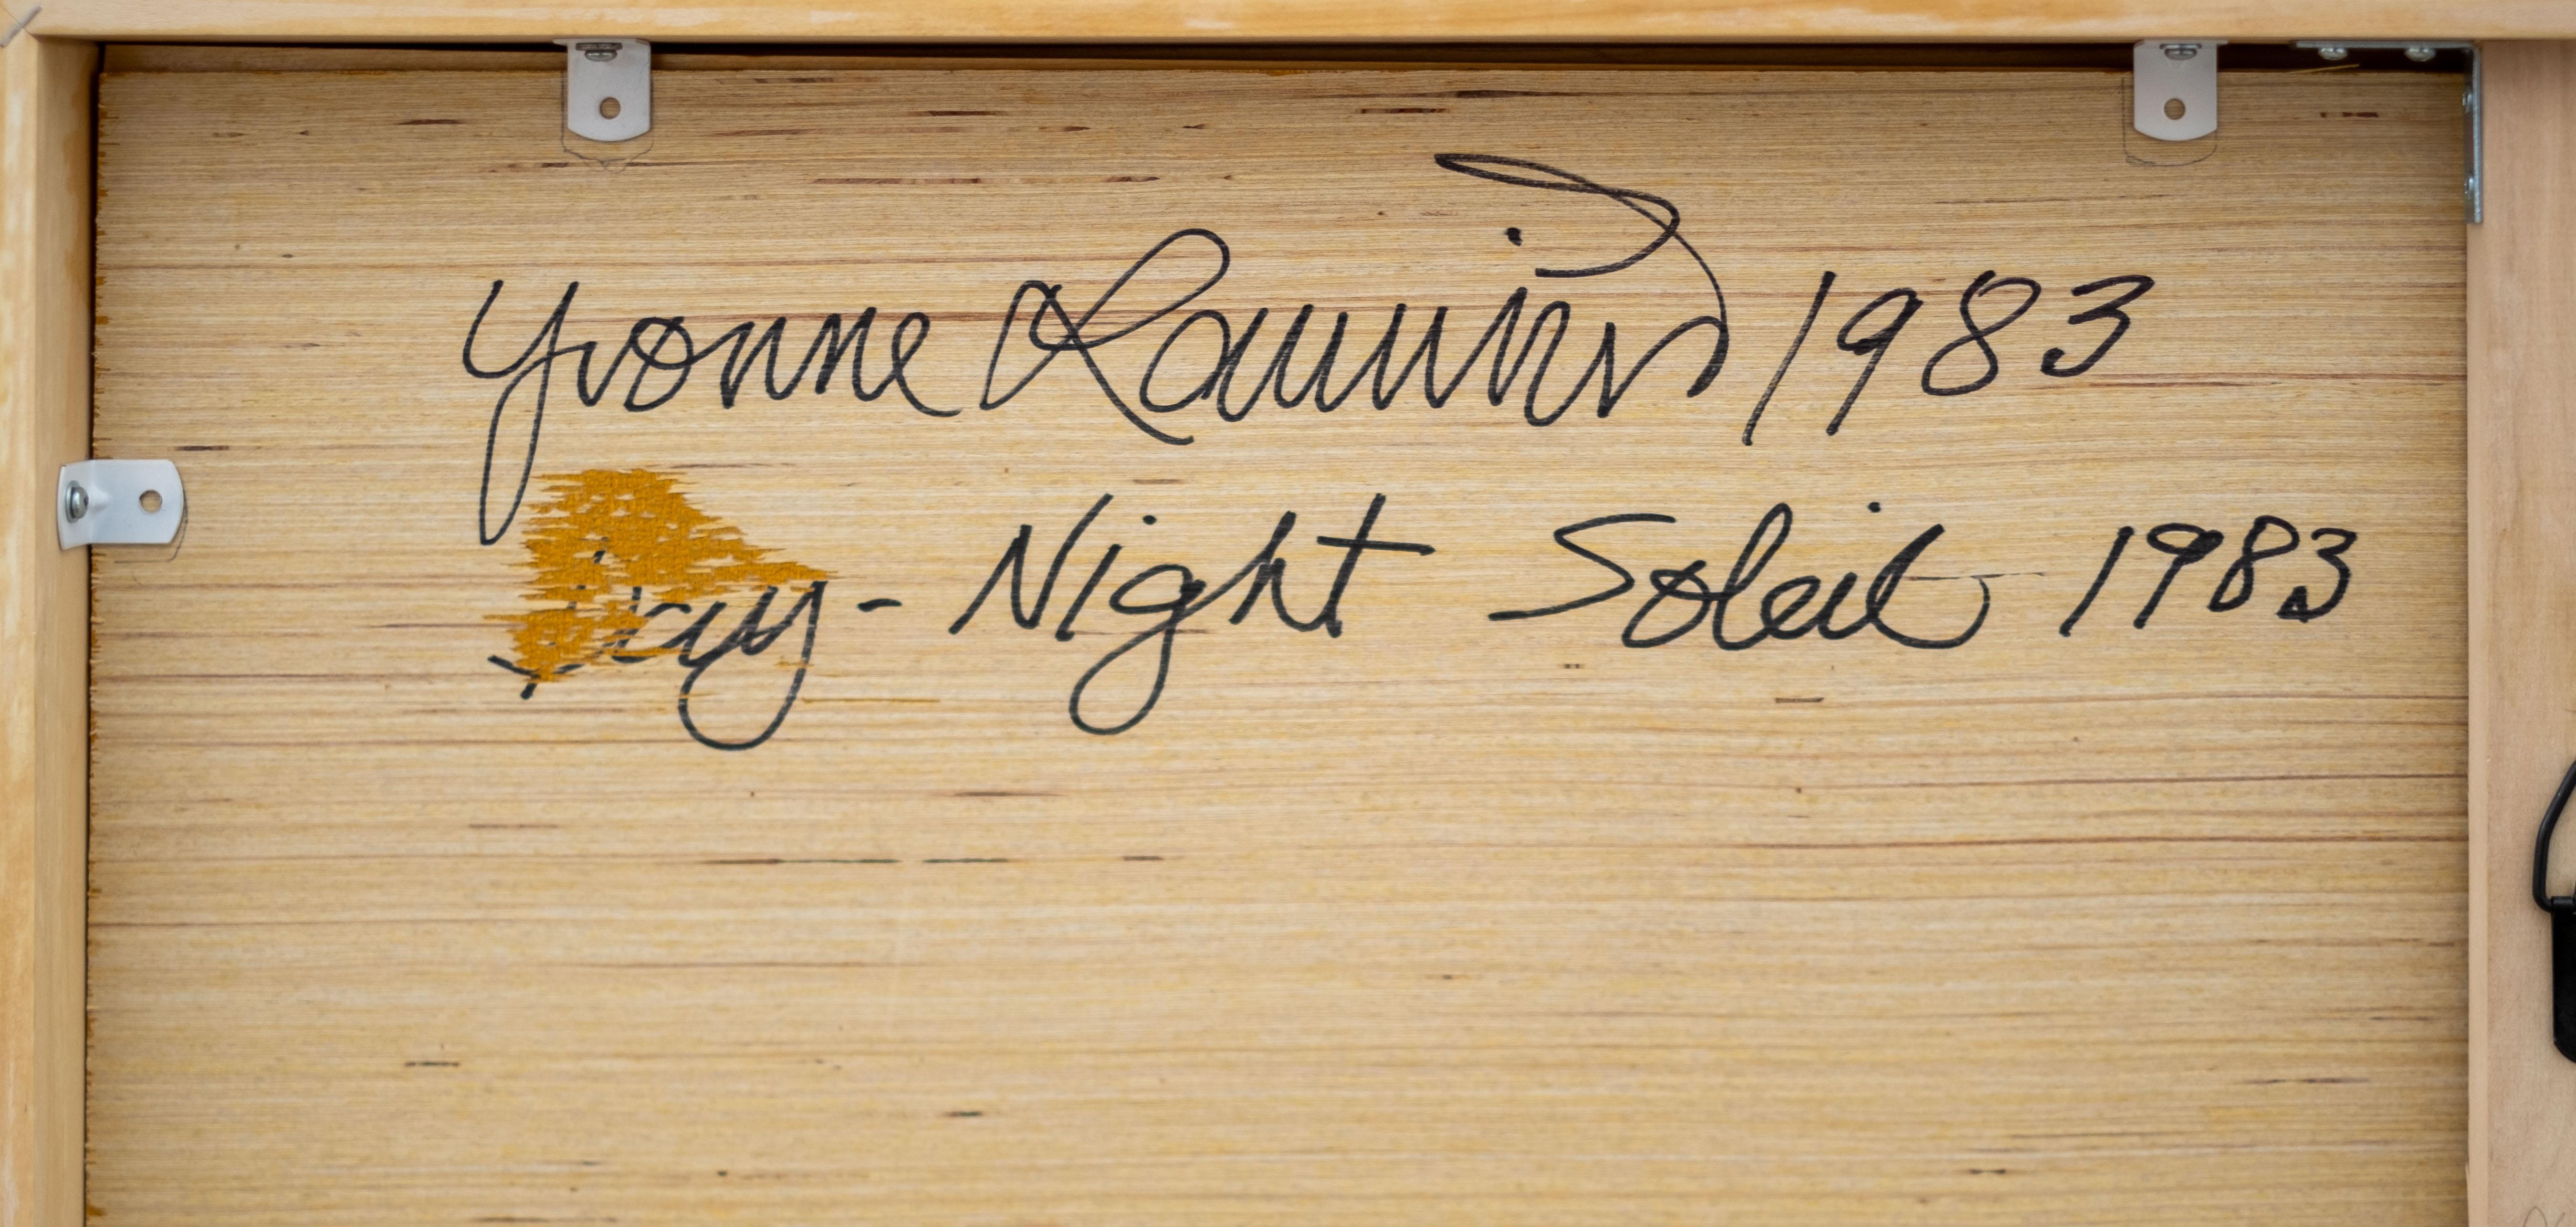 Yvonne 1983
Day - Night Soleil 1983